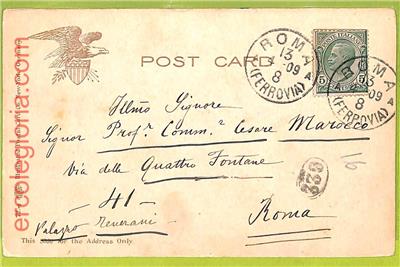 POST CARD
ROMA
13
4 · 09
8
(FERROVIA)
ROMA
13
4 · 09
8
(FERROVIA)
POSTE ITALIANE
5
Illmo Signore
Signor Profr. Comm.e Cesare Marocco
Via delle Quattro Fontane
— 41 —
16
333
Palazzo
Roma
This Side for the Address Only.
ercolegloria.com